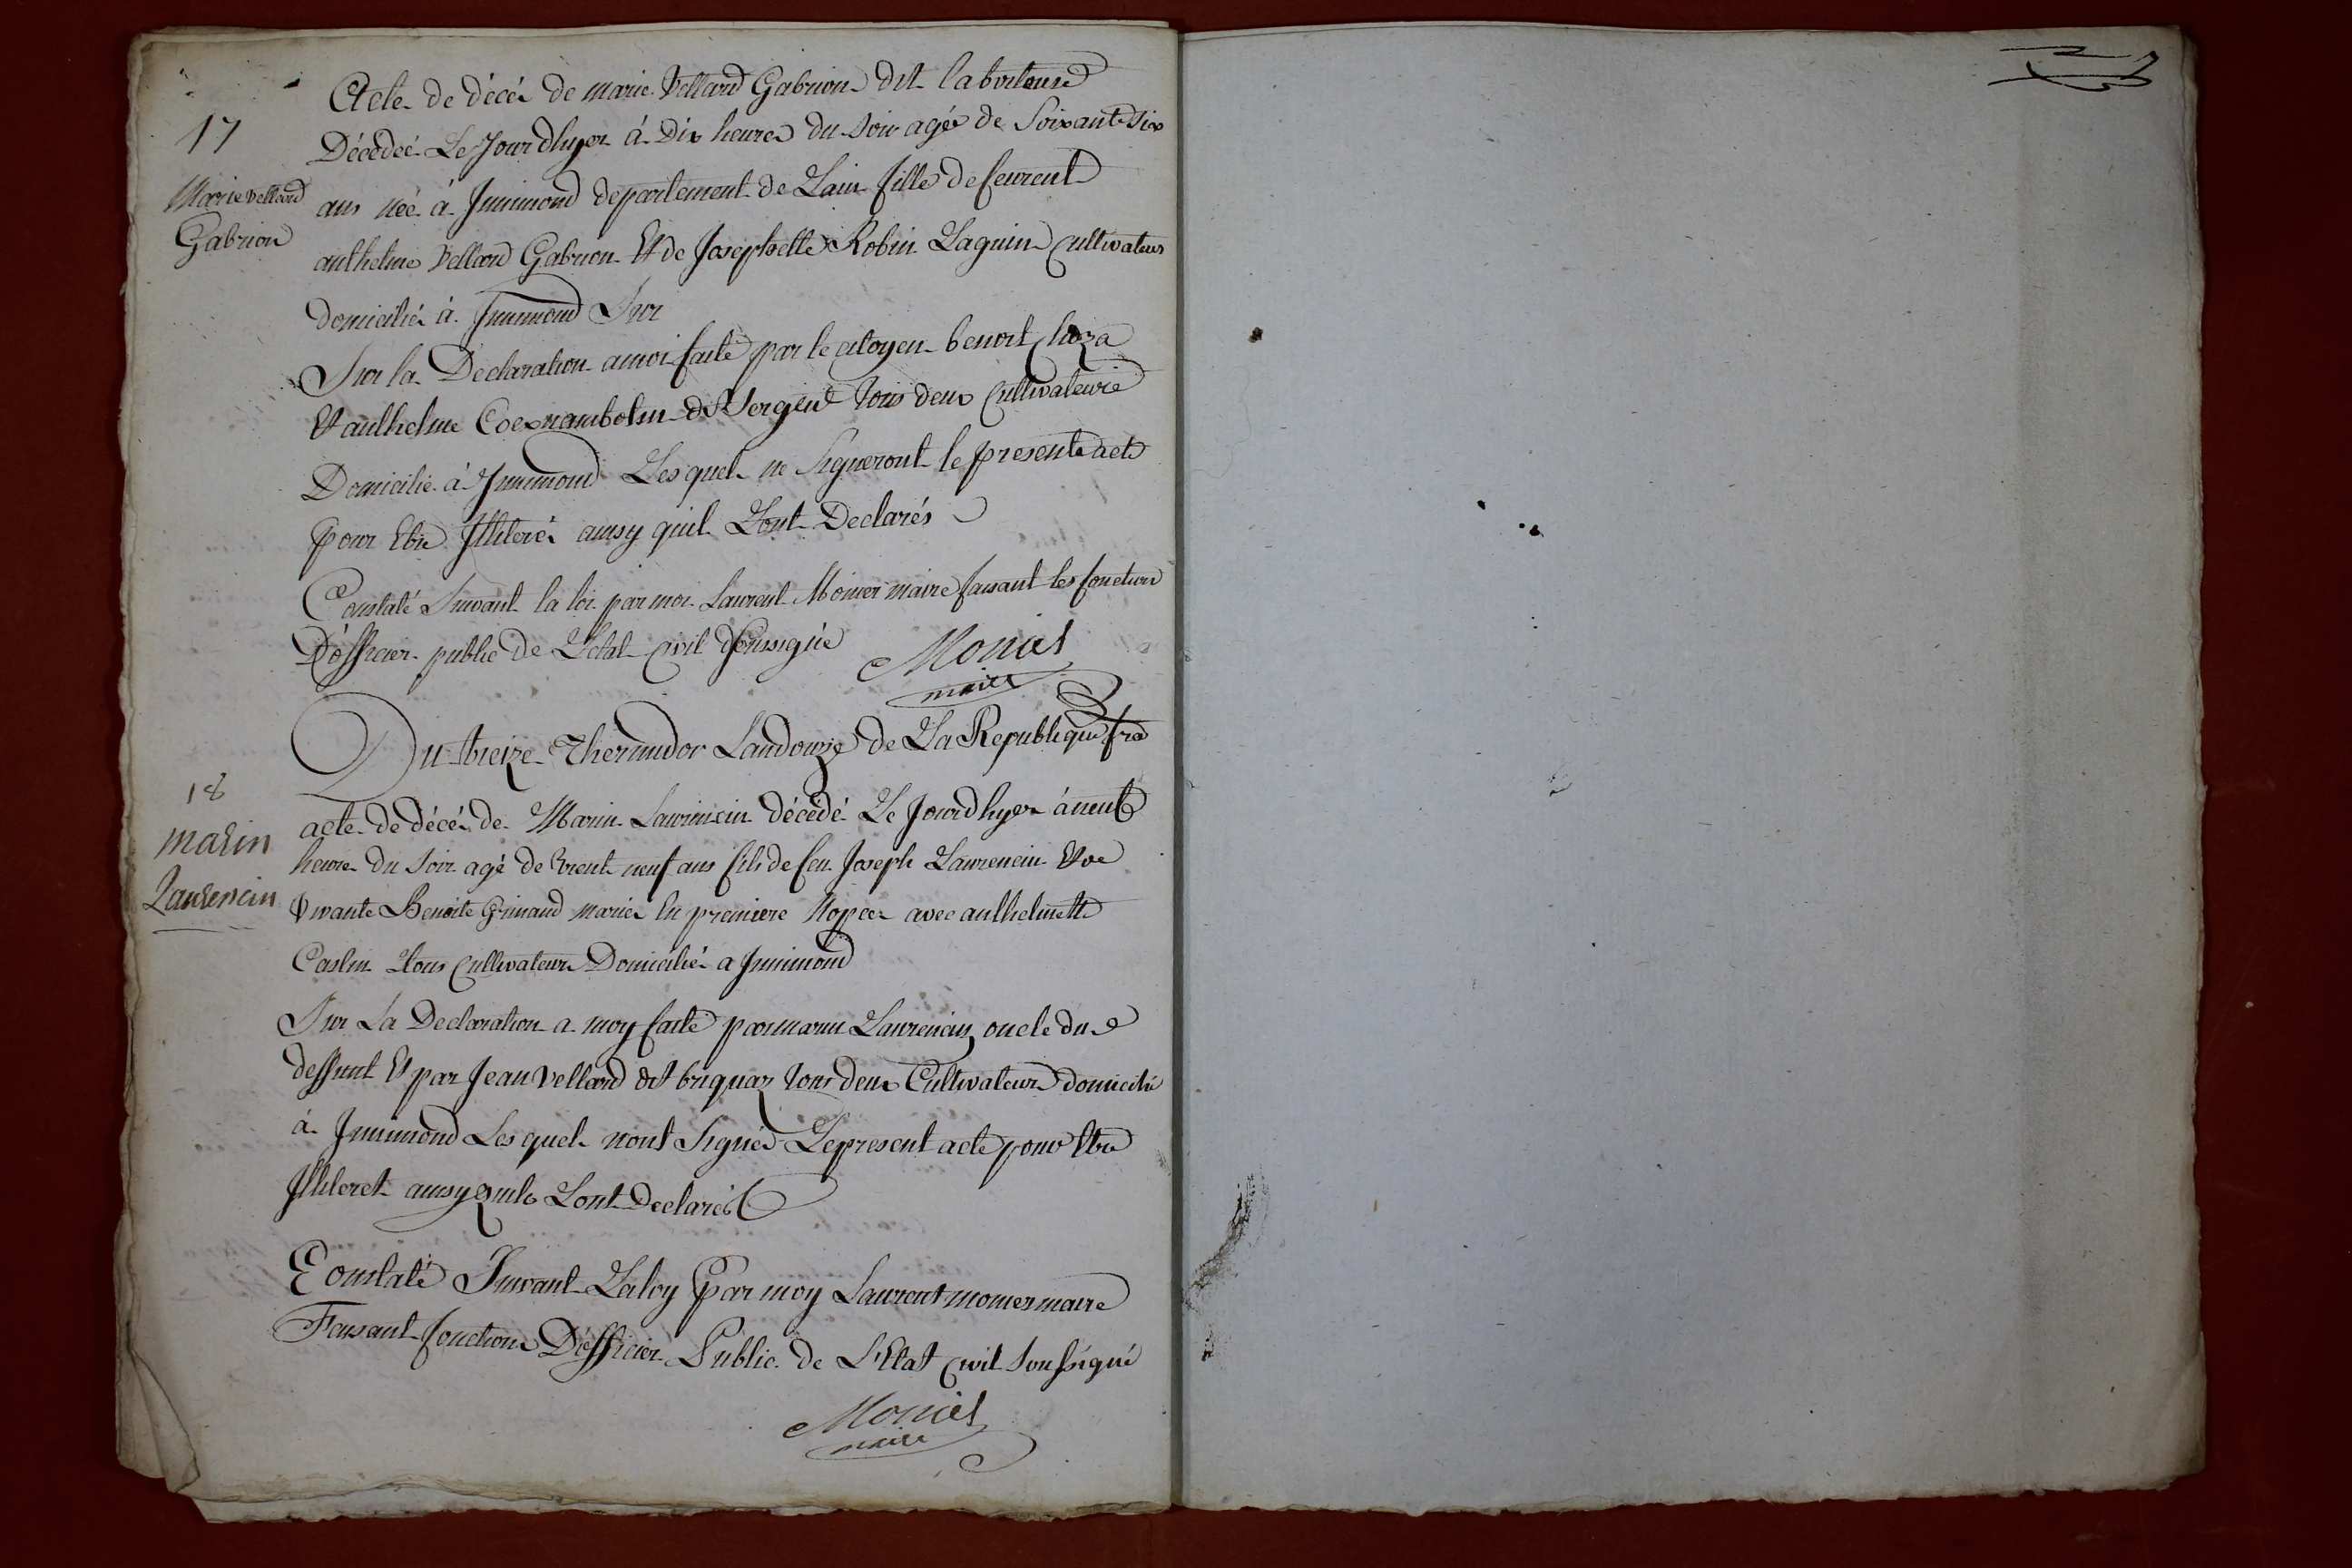 17
Marie vellard
Gabrion
Acte de décés de marie Vellard Gabrion dit la boiteuse
Décédeé Le Jour dhyer à Dix heures du soir agée de Soixante Six
ans née à Innimond departement de Lain fille de feurent
anthelme Vellard Gabrion Et de Josephette Robin Laguin Cultivateurs
domiciliés à Innimond Sur
Sur la Declaration amoi faite par le citoyen benoit
Et anthelme dit Sergent tous deux Cultivateurs
Domicilié à Innimond Les quels ne Signeront le presente acte
pour Etre Illiterés ainsy quil Lont Declarés
Constaté Suivant la loi par moi Laurent Monier maire faisant les fonction
D'officier public de Letat Civil Soussigné
Monier
maire
18
marin
Laurencin
Du treize Thermidor Landouze de La Republique fra
acte de décés de Marin Laurencin décédé Le Jour dhyer à neuf
heure du Soir agé de trent neuf ans fils de feu Joseph Laurencin Et de
vivante Benoite Grinand mariés En premiere Nopces avec anthelmette
Caslin tous Cultivateurs Domiciliés a Innimond
Sur La Declaration a moy faite par marin Laurencin oncle du
deffunt Et par Jean vellard dit briquaz tous deux Cultivateurs domicilié
à Innimond Les quels nont Signés Le present acte pour Etre
Illiteret ainsy quils Lont Declarés
Constaté Suivant La loy Par moy Laurent monier maire
Faisant fonctions D'officier Public de L'Etat Civil Soussigné
Monier
maire